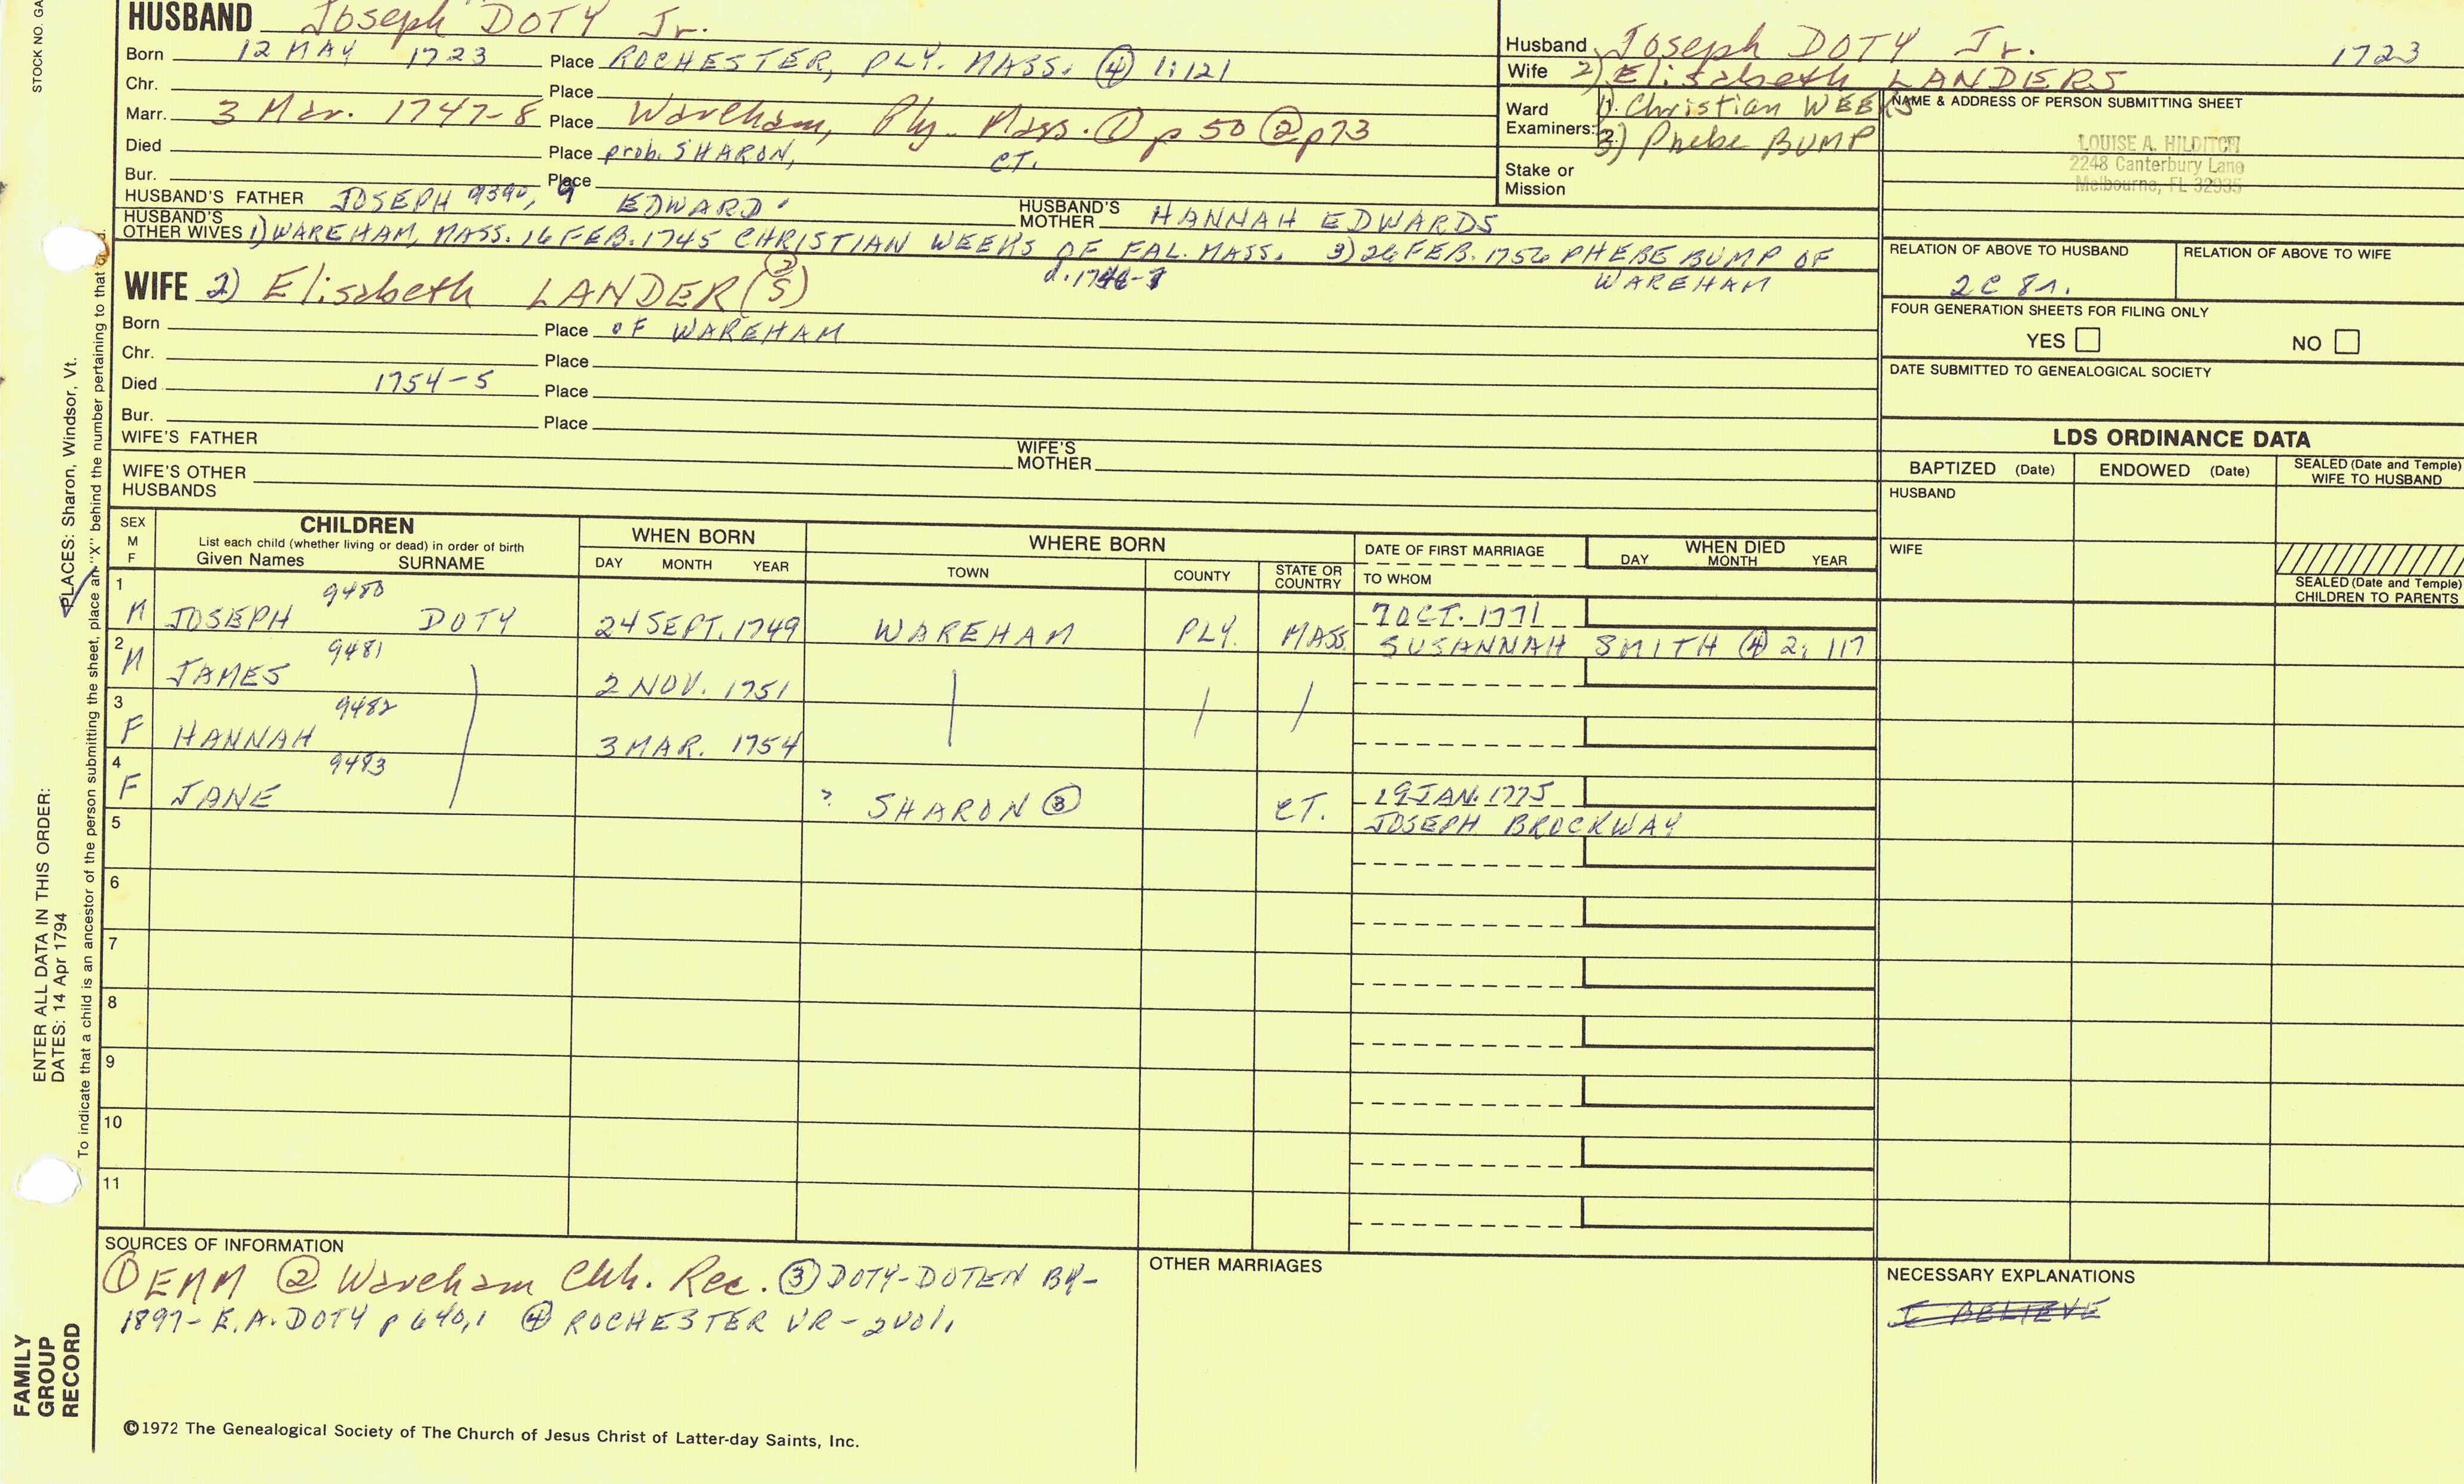 STOCK NO. GA
HUSBAND Joseph DOTY Jr.
Born 12 MAY 1723 Place ROCHESTER, PLY. MASS. ④ 1:121
Chr. Place
Marr. 3 Mar. 1747-8 Place Wareham, Ply. Mass. ① p 50 ② p73
Died Place prob. SHARON, CT.
Bur. Place
HUSBAND'S FATHER JOSEPH 9390, 9 EDWARD HUSBAND'S MOTHER HANNAH EDWARDS
HUSBAND'S OTHER WIVES 1) WAREHAM, MASS. 16 FEB. 1745 CHRISTIAN WEEKS OF FAL. MASS. 3) 26 FEB. 1756 PHEBE BUMP OF
WAREHAM
WIFE 2) Elisabeth LANDER(S)
Born Place OF WAREHAM
Chr. Place
Died 1754-5 Place
Bur. Place
WIFE'S FATHER WIFE'S MOTHER
WIFE'S OTHER HUSBANDS
Husband Joseph DOTY Jr. 1723
Wife 2) Elisabeth LANDERS
Ward Examiners: 1). Christian WEEKS
3) Phebe BUMP
Stake or Mission
NAME & ADDRESS OF PERSON SUBMITTING SHEET
LOUISE A. HILDITCH
2248 Canterbury Lane
Melbourne, FL 32935
RELATION OF ABOVE TO HUSBAND RELATION OF ABOVE TO WIFE
2C 8r.
FOUR GENERATION SHEETS FOR FILING ONLY
YES NO
DATE SUBMITTED TO GENEALOGICAL SOCIETY
LDS ORDINANCE DATA
BAPTIZED (Date) ENDOWED (Date) SEALED (Date and Temple) WIFE TO HUSBAND
HUSBAND
WIFE
SEALED (Date and Temple) CHILDREN TO PARENTS
SEX M F
CHILDREN
List each child (whether living or dead) in order of birth
Given Names SURNAME
WHEN BORN
DAY MONTH YEAR
WHERE BORN
TOWN COUNTY STATE OR COUNTRY
DATE OF FIRST MARRIAGE
TO WHOM
WHEN DIED
DAY MONTH YEAR
1 M JOSEPH 9480 DOTY 24 SEPT. 1749 WAREHAM PLY. MASS. 7 OCT. 1771
SUSANNAH SMITH ④ 2: 117
2 M JAMES 9481 2 NOV. 1751
3 F HANNAH 9482 3 MAR. 1754
4 F JANE 9483 ? SHARON ③ CT. 19 JAN. 1775
JOSEPH BROCKWAY
5
6
7
8
9
10
11
SOURCES OF INFORMATION
① EMM ② Wareham Chh. Rec. ③ DOTY-DOTEN BY-
1897- E.A. DOTY p 640,1 ④ ROCHESTER VR - 2 vol.
OTHER MARRIAGES
NECESSARY EXPLANATIONS
I BELIEVE
©1972 The Genealogical Society of The Church of Jesus Christ of Latter-day Saints, Inc.
FAMILY GROUP RECORD
ENTER ALL DATA IN THIS ORDER:
DATES: 14 Apr 1794
PLACES: Sharon, Windsor, Vt.
To indicate that a child is an ancestor of the person submitting the sheet, place an "X" behind the number pertaining to that